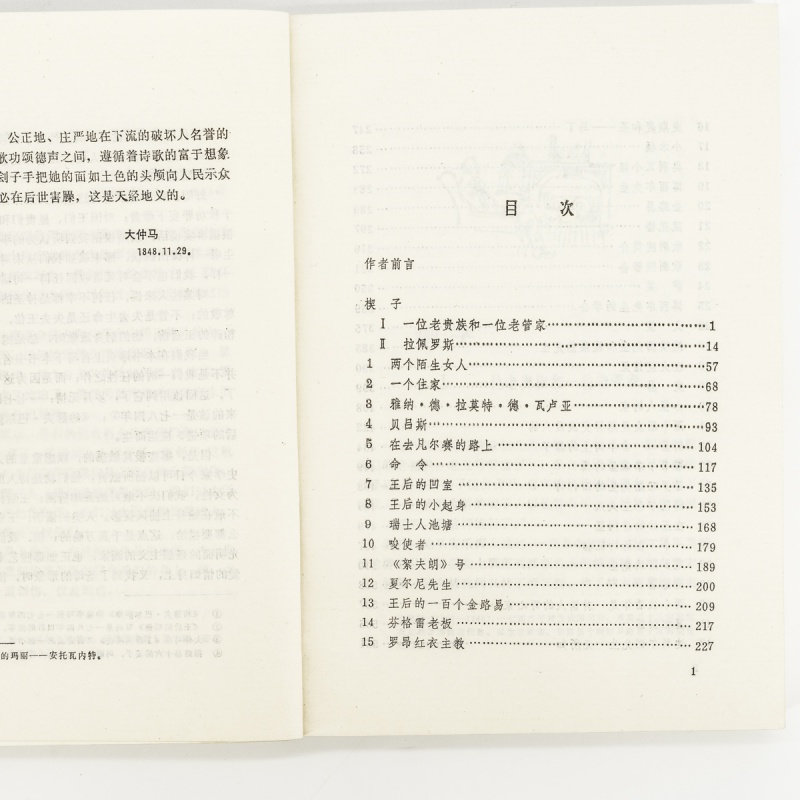 公正地、庄严地在下流的破坏人名誉的
歌功颂德声之间，遵循着诗歌的富于想象
刽子手把她的面如土色的头颅向人民示众
必在后世害臊，这是天经地义的。
大仲马
1848.11.29。
的玛丽——安托瓦内特。
目 次
作者前言
楔 子
Ⅰ 一位老贵族和一位老管家……1
Ⅱ 拉佩罗斯……14
1 两个陌生女人……57
2 一个住家……68
3 雅纳·德·拉莫特·德·瓦卢亚……78
4 贝吕斯……93
5 在去凡尔赛的路上……104
6 命 令……117
7 王后的凹室……135
8 王后的小起身……153
9 瑞士人池塘……168
10 唆使者……179
11 《絮夫朗》号……189
12 夏尔尼先生……200
13 王后的一百个金路易……209
14 芬格雷老板……217
15 罗昂红衣主教……227
1